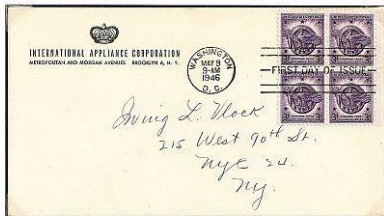 INTERNATIONAL APPLIANCE CORPORATION
METROPOLITAN AND MORGAN AVENUES BROOKLYN 6, N. Y.
WASHINGTON
MAY 9
9-AM
1946
D. C.
FIRST DAY OF ISSUE
Irving L. Vlock
215 West 90th St.
NYC 24.
NY.